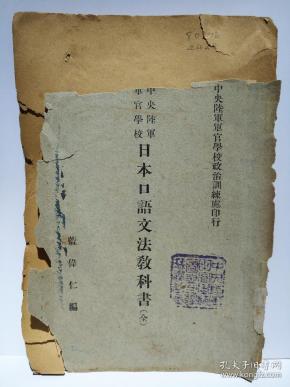 中央陸軍軍官學校政治訓練處印行
中央陸軍
軍官學校
日本口語文法教科書(全)
藍偉仁編
孔夫子旧书网